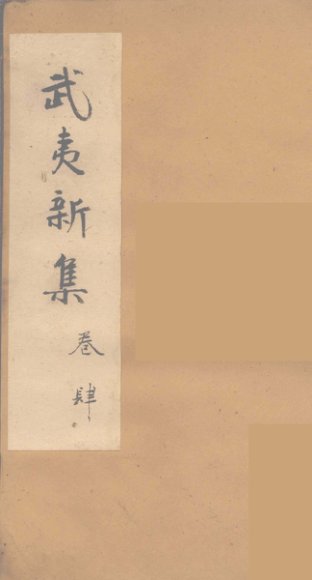 武夷新集
卷肆